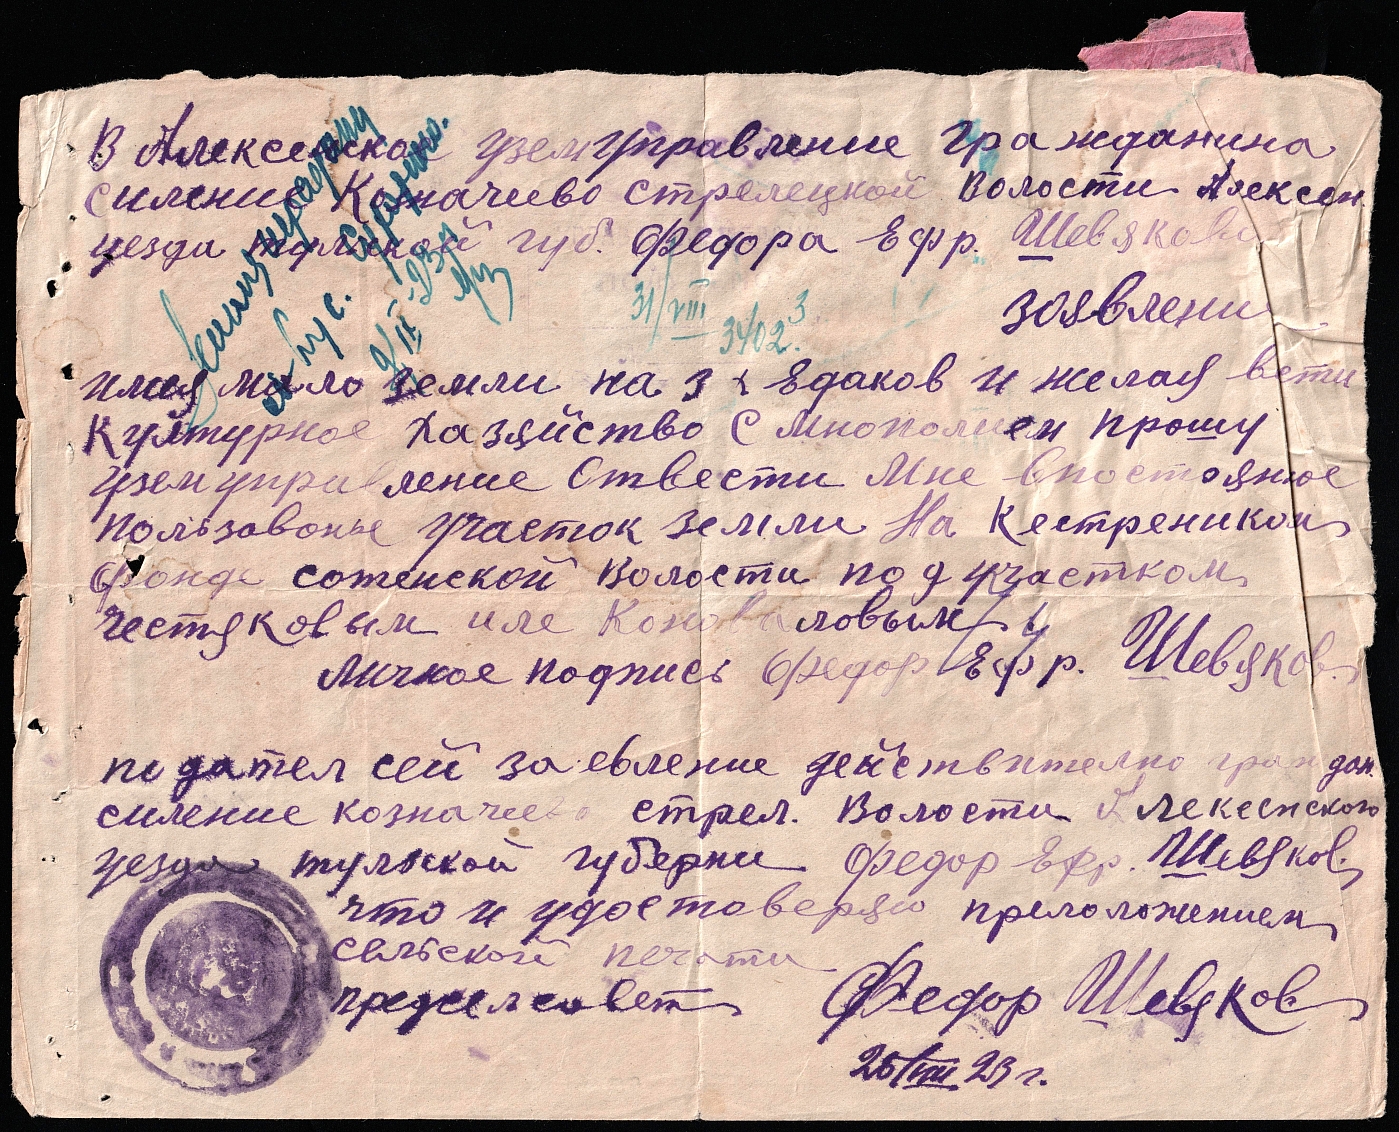 В Алексенской уземуправление Гражданина
силение Козначево стрелецкой Волости Алексен
уезда тульской губ. Федора Ефр. Шевякова
31/VIII
3402. 3
зоявлени
имея мало земли на 3 х Едаков и желая вети
Културное Хазяйство С многополием прошу
уземуправление Отвести Мне впостояное
пользованье участок земли На Кестреником
фонде сотенской Волости под участком
честяковым иле Коноваловым
Личное подпись Федор Ефр. Шевяков.
подател сей заевление действително граждан.
силение козначево стрел. Волости Алексенского
уезда тульской губерни Федор Ефр. Шевяков.
что и удостоверяю прелоложением
сельской печати
предселсовет Федор Шевяков
26/VIII 23 г.